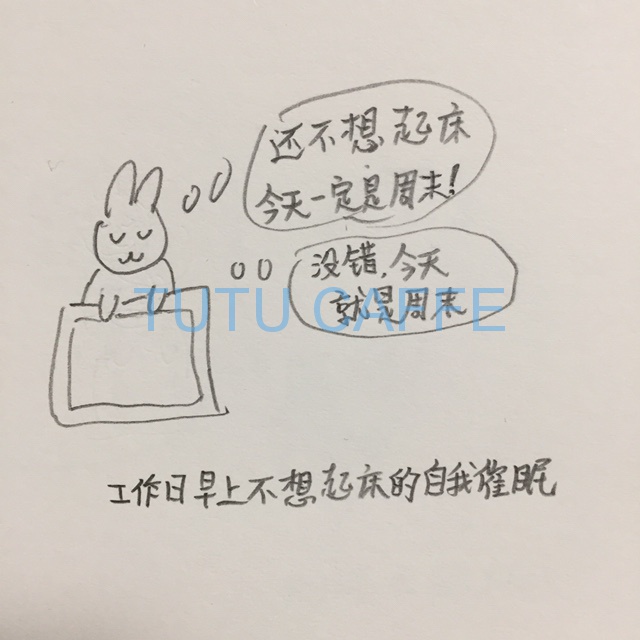 还不想起床
今天一定是周末!
没错,今天
就是周末
TUTU CAFFE
工作日早上不想起床的自我催眠